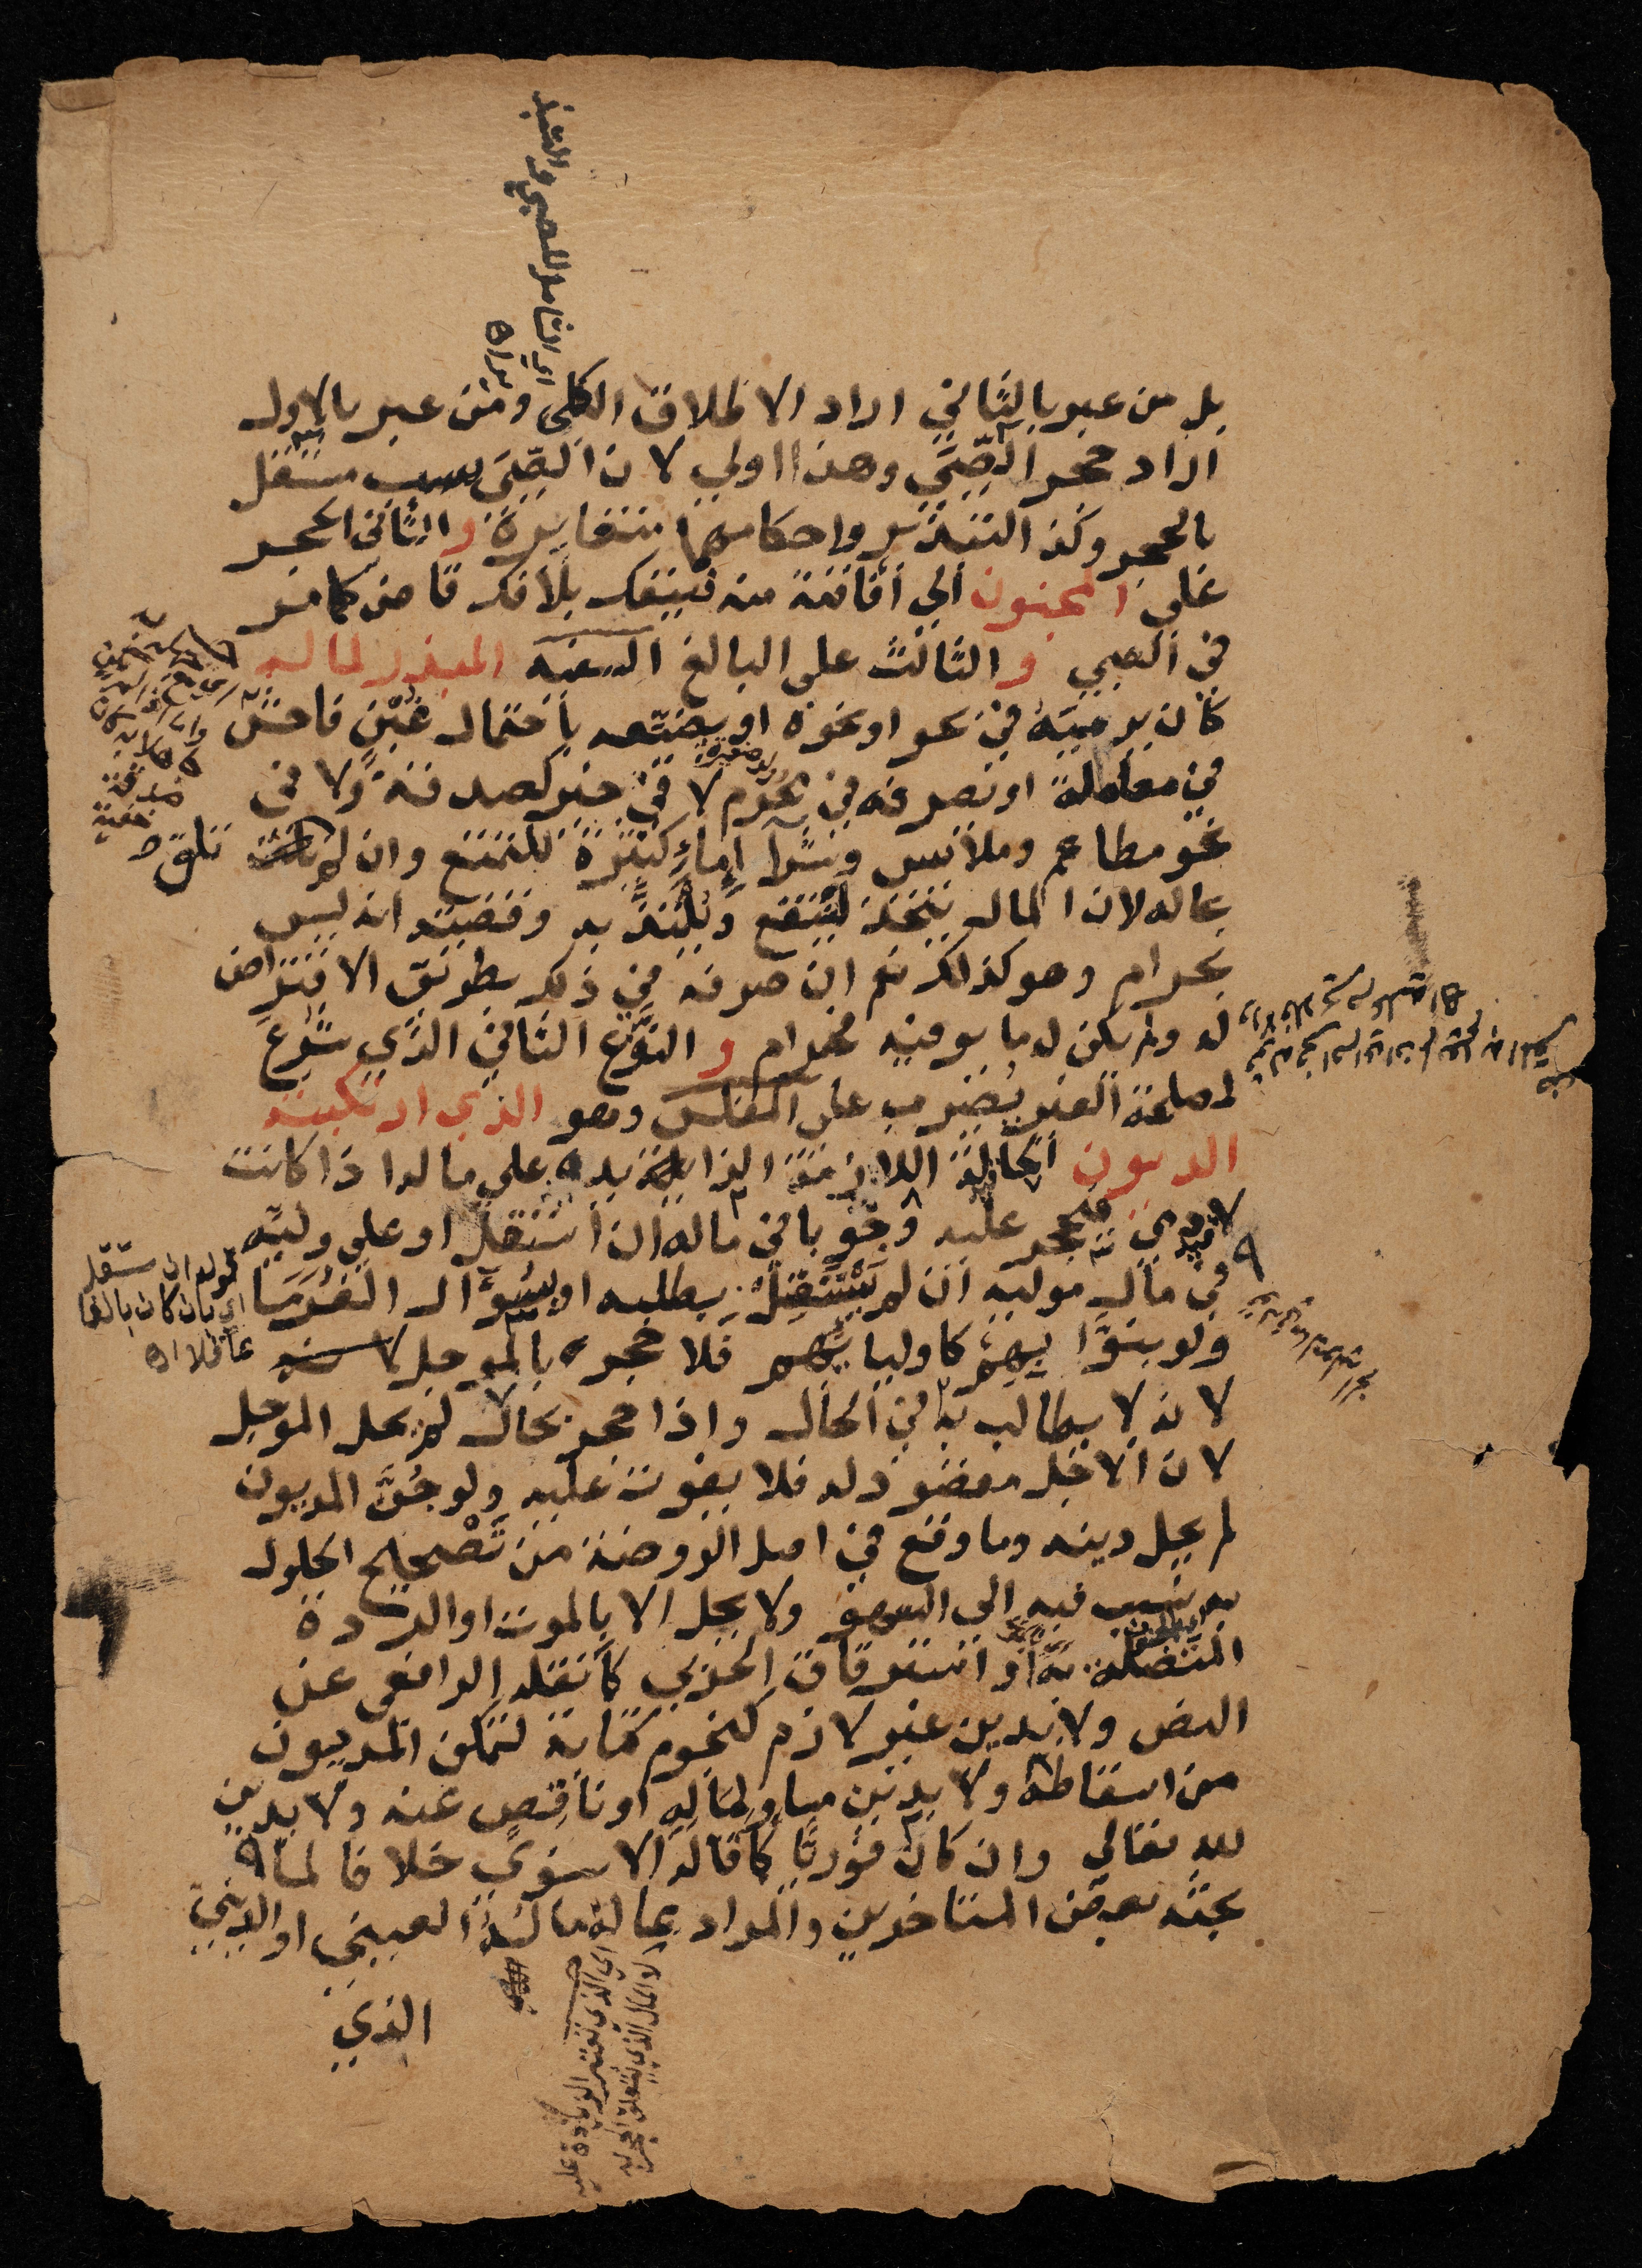 بل من عبر بالثاني اراد الاطلاق الكلي ومن عبر بالاول
اراد حجر الصبي وهذا اولي لان الصبي سبب مستقل
بالحجر وكذا التبذير واحكامهما متغايرة والثاني الحجر
على المجنون الي افاقته منه فينفك بلا فك قاض كما مر
في الصبي والثالث على البالغ السفيه المبذر لماله
كان يرميه في بحر او نحوه او يضيعه باحتمال غبن فاحش
في معاملة او يصرفه في محرم لا في خير كصدقة ولا في
نحو مطاعم وملابس وشرا اماء كثيرة للتمتع وان لم تلق
بحاله لان المال يتخذ لينتفع ويلتذ به وقضيته انه ليس
بحرام وهو كذلك نعم ان صرفه في ذلك بطريق الاقتراض
له ولم يكن له ما يوفيه فحرام والنوع الثاني الذي شرع
لمصلحة الغير يضرب على المفلس وهو الذي ارتكبته
الديون الحالة اللازمة الزايدة على ماله اذا كانت
لادمي فيحجر عليه وجوبا في ماله ان استقل او على وليه
في مال موليه ان لم يستقل بطلبه او بسؤال الغرما
ولو بنوابهم كاوليائهم فلا حجر بالموجل
لانه لا يطالب به في الحال واذا حجر بحال لم يحل الموجل
لان الاجل مقصود له فلا يفوت عليه ولو جن المديون
لم يحل دينه وما وقع في اصل الروضة من تصحيح الحلول
به نسب فيه الى السهو ولا يحل الا بالموت او الردة
المتصلة به او استرقاق الحربي كما نقله الرافعي عن
النص ولا بدين غير لازم كنجوم كتابة لتمكن المديون
من اسقاطه ولا بدين مساو لماله او ناقص عنه ولا بدين
لله تعالى وان كان فوريا كما قاله الاسنوي خلافا لما
بحثه بعض المتاخرين والمراد بماله ماله العيني او الديني
الذي
اي الشامل للصبي والتبذير اه
قوله ان استقل
اي بان كان بالغا
عاقلا اه